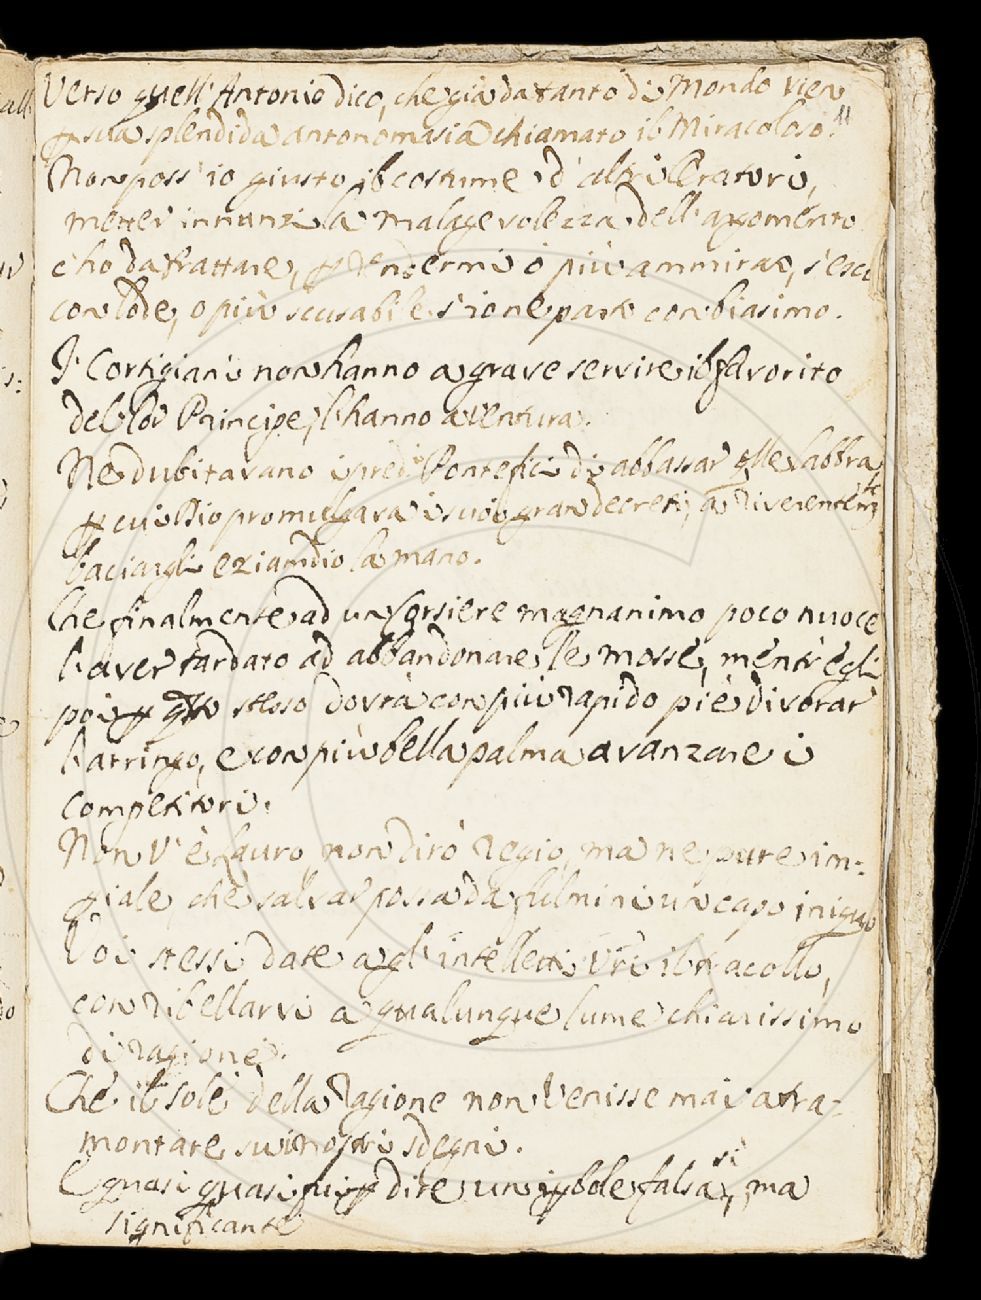 Verso quell' Antonio dico, che già da tanto di Mondo vien
p sua splendida antonomasia chiamato il Miracoloso.
11
Non poss' io giusto il costume d' altri Oratori,
metter innanzi la malagevolezza dell' argomento
c'ho da trattare, p rendermi o più ammirat, s' esci
con lode, o più scusabile s' io ne parto con biasimo.
I Cortigiani non hanno a grave servire il favorito
del lor Principe, l' hanno a ventura.
Ne dubitavano i pred.i Pontefici di abbassar qlle labbra
p cui Dio promulgava i suoi gran decreti, a riverentemte
baciargli eziamdio la mano.
Che finalmente ad un Corsiere magnanimo poco nuoce
l' aver tardato ad abbandonare le mosse, mentr' egli
poi p qsto stesso dovrà con più rapido piè divorar
l' arringo, e con più bella palma avanzare i
competitori.
Non v' è lauro, non dirò Regio, ma ne pure im-
piale, che salvar possa da fulmini un capo iniquo
Voi stessi date agl' intelletti vri il tracollo,
con ribellarvi a qualunque lume chiarissimo
di ragione.
Che il sole della Ragione non venisse mai a tra-
montare sui nostri sdegni.
E quasi quasi fui p dire un iperbole falsa sì, ma
significante